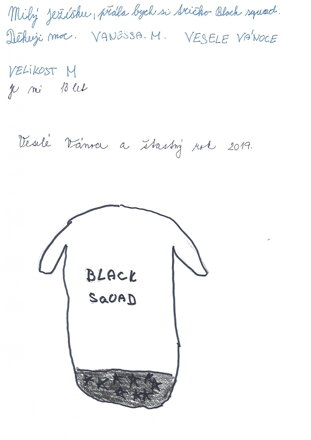 Milý ježíšku, přála bych si tričko Black squad.
Děkuji moc. VANESSA. M. VESELE VÁNOCE
VELIKOST M
je mi 13 let
Veselé Vánoce a štastný rok 2019.
BLACK
SQUAD